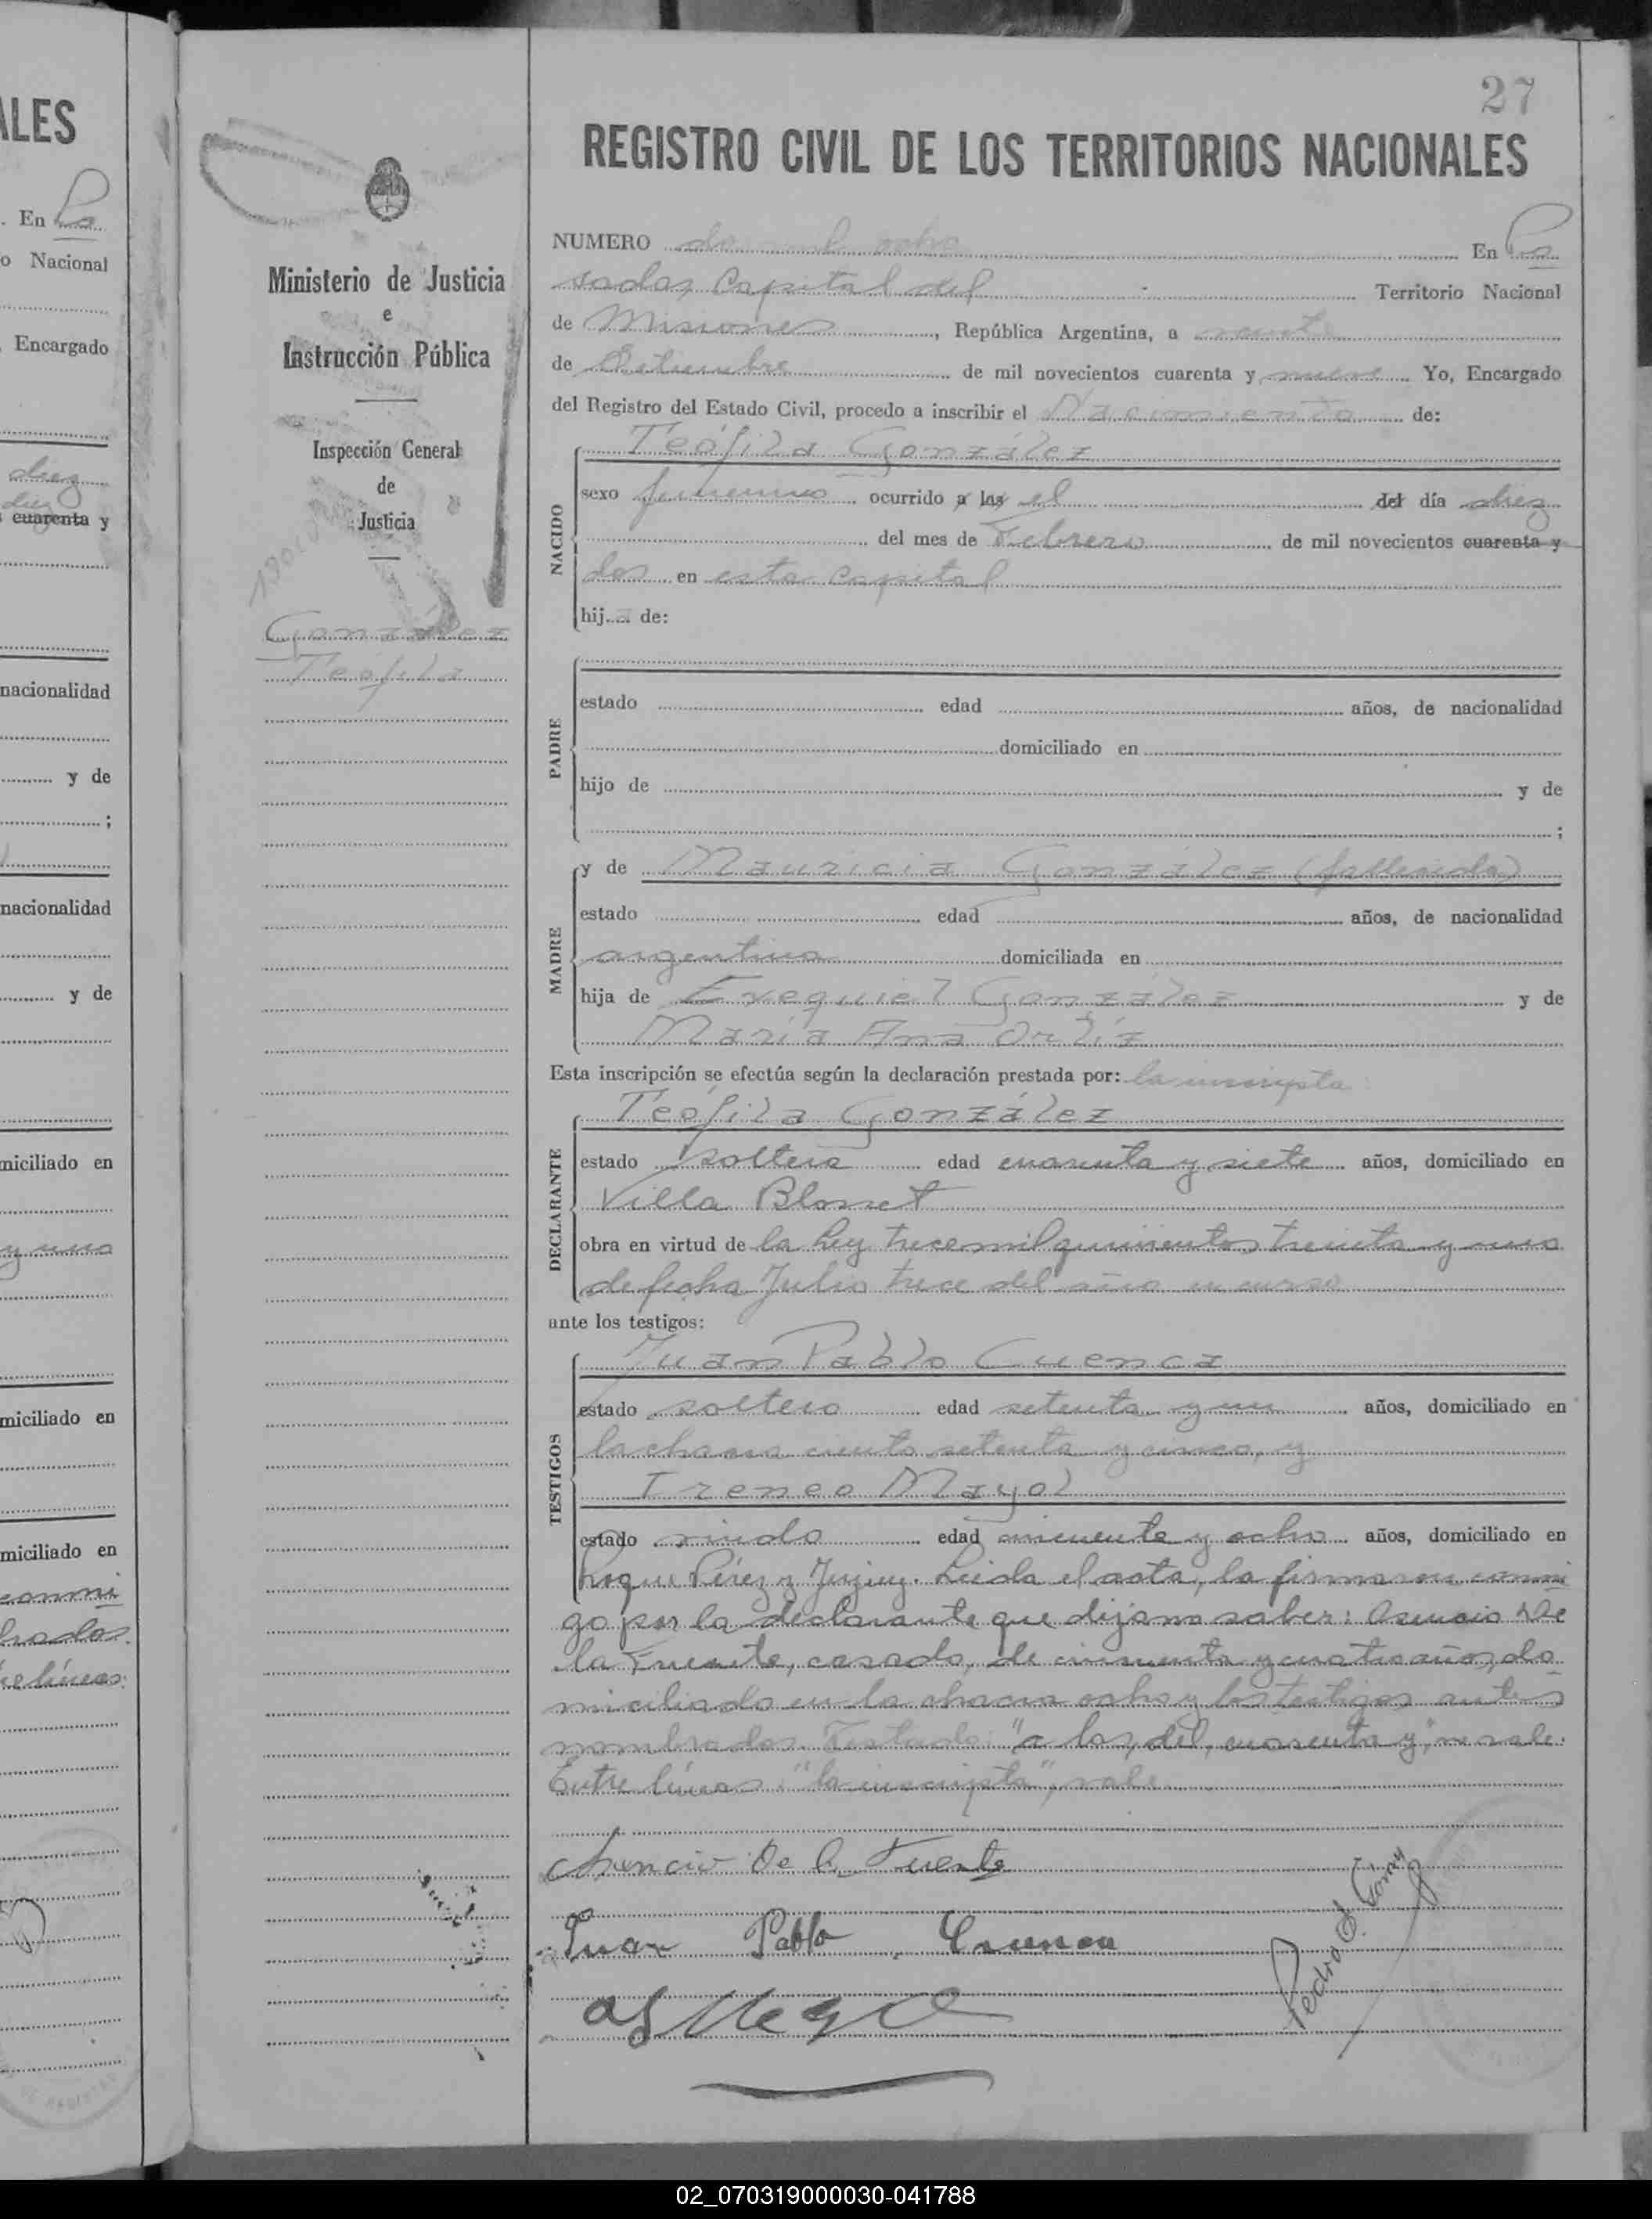 ALES
. En Po
o Nacional
, Encargado
diez
diez
cuarenta y
nacionalidad
y de
;
nacionalidad
y de
miciliado en
y uno
miciliado en
miciliado en
conmi
brados.
re líneas:
27
Ministerio de Justicia
e
Instrucción Pública
Inspección General
de
Justicia
González
Teófila
REGISTRO CIVIL DE LOS TERRITORIOS NACIONALES
NUMERO dos mil ocho En Po
sadas, Capital del Territorio Nacional
de Misiones, República Argentina, a
de Setiembre de mil novecientos cuarenta y nueve Yo, Encargado
del Registro del Estado Civil, procedo a inscribir el Nacimiento de:
Teófila González
NACIDO
sexo femenino ocurrido a las el del día diez
del mes de Febrero de mil novecientos cuarenta y
dos en esta capital
hija de:
PADRE
estado edad años, de nacionalidad
domiciliado en
hijo de y de
;
MADRE
y de Mauricia González (fallecida)
estado edad años, de nacionalidad
argentina domiciliada en
hija de Exequiel González y de
María Ana Ortíz
Esta inscripción se efectúa según la declaración prestada por: la inscripta
DECLARANTE
Teófila González
estado soltera edad cuarenta y siete años, domiciliado en
Villa Blosset
obra en virtud de la ley trece mil quinientos treinta y uno
de fecha Julio trece del año en curso
ante los testigos:
TESTIGOS
Juan Pablo Cuenca
estado soltero edad setenta y un años, domiciliado en
la chacra ciento setenta y cinco, y
Ireneo Mayol
estado viudo edad cincuenta y ocho años, domiciliado en
Roque Pérez y Jujuy. Leída el acta, la firmaron conmi
go por la declarante que dijo no saber: Asencio De
la Fuente, casado, de cincuenta y cuatro años, do
miciliado en la chacra ocho y los testigos antes
nombrados. Testado: "a las, del, cuarenta y", no vale.
Entre líneas: "la inscripta", vale.
Asencio De la Fuente
Juan Pablo Cuenca
Pedro
02_070319000030-041788